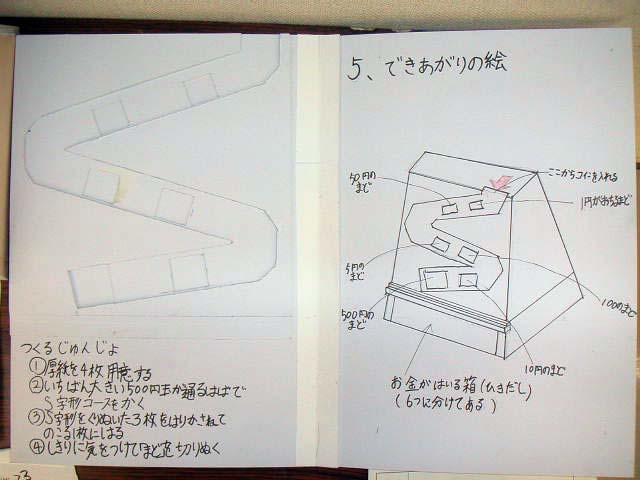 つくるじゅんじょ
①厚紙を4枚用意する
②いちばん大きい500円玉が通るはばで
S字形コースをかく
③S字形をくりぬいた3枚をはりかさねて
のこる1枚にはる
④しきりに気をつけてまどを切りぬく
5、できあがりの絵
ここからコインを入れる
50円の
まど
1円がおちるまど
5円の
まど
100のまど
500円の
まど
10円のまど
お金がはいる箱(ひきだし)
(6つに分けてある)